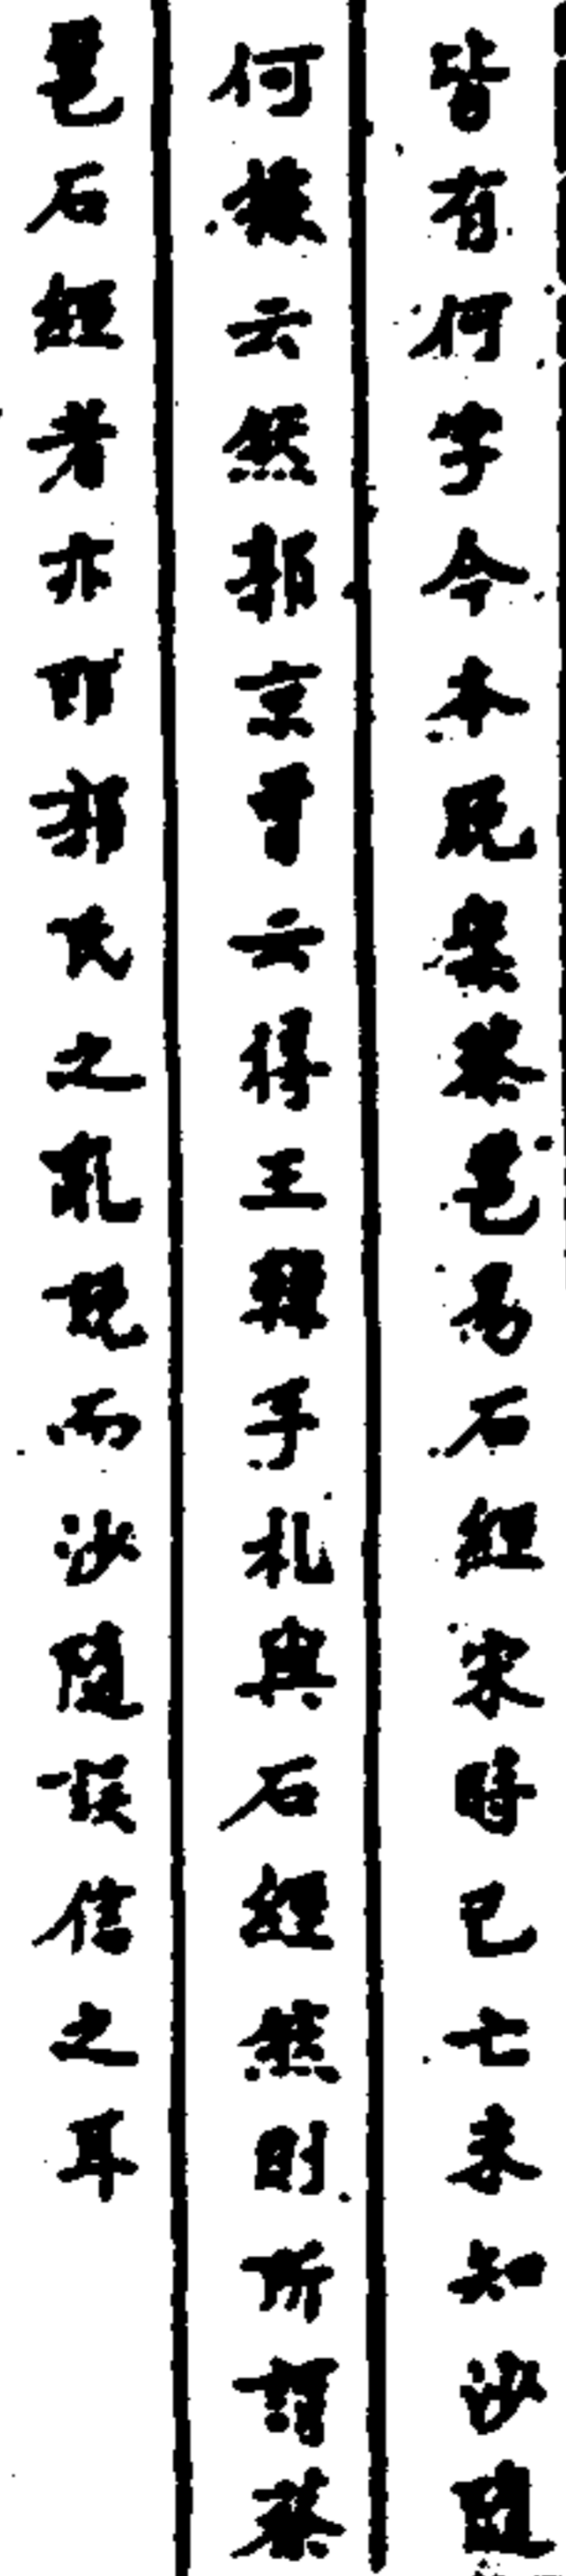 皆有何字今本脱案蔡邕易石經宋時已亡未知沙隨
何據云然郭京曾云得王韓手札與石經然則所謂蔡
邕石經者亦即郭氏之亂説而沙隨誤信之耳